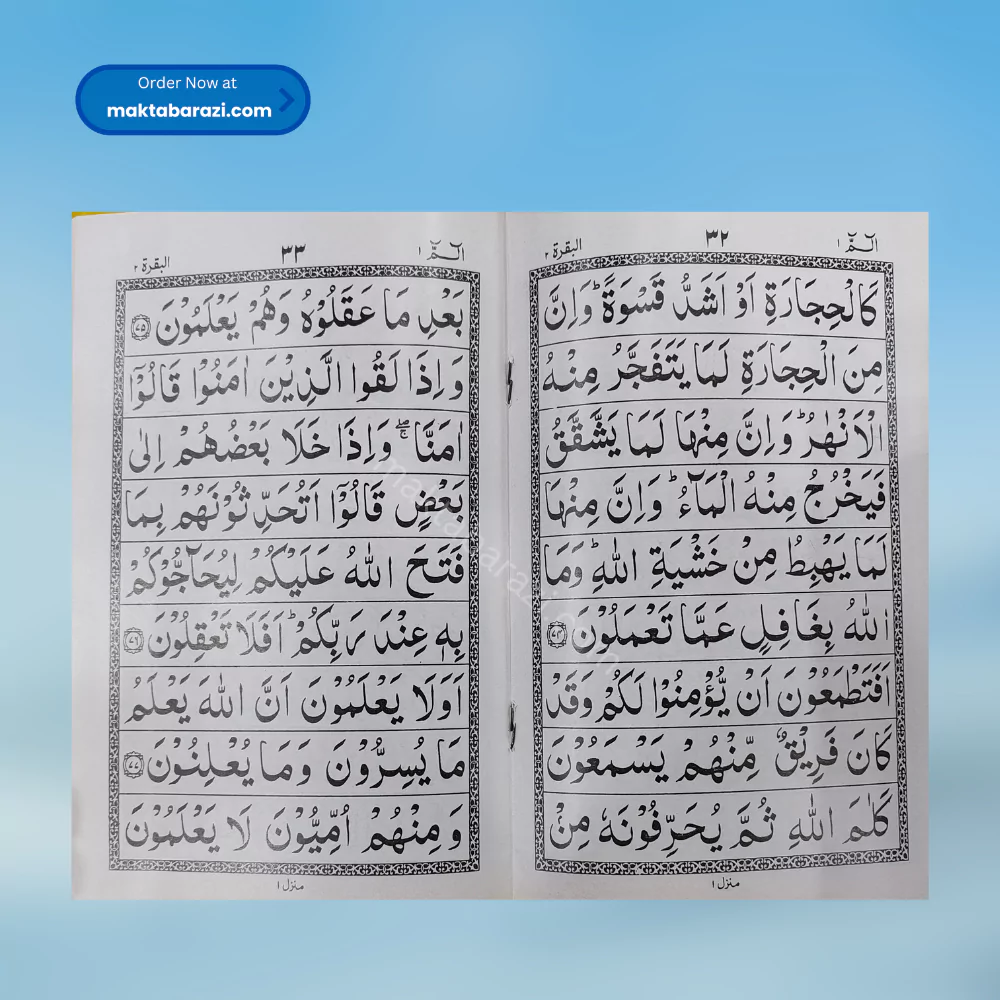 Order Now at
maktabarazi.com
الٓمّٓ ١ ٣٢ البقرة ٢
كَالْحِجَارَةِ اَوْ اَشَدُّ قَسْوَةً ؕ وَاِنَّ
مِنَ الْحِجَارَةِ لَمَا يَتَفَجَّرُ مِنْهُ
الْاَنْهٰرُ ؕ وَاِنَّ مِنْهَا لَمَا يَشَّقَّقُ
فَيَخْرُجُ مِنْهُ الْمَآءُ ؕ وَاِنَّ مِنْهَا
لَمَا يَهْبِطُ مِنْ خَشْيَةِ اللّٰهِ ؕ وَمَا
اللّٰهُ بِغَافِلٍ عَمَّا تَعْمَلُوْنَ ﴿٧٤﴾
اَفَتَطْمَعُوْنَ اَنْ يُّؤْمِنُوْا لَكُمْ وَقَدْ
كَانَ فَرِيْقٌ مِّنْهُمْ يَسْمَعُوْنَ
كَلٰمَ اللّٰهِ ثُمَّ يُحَرِّفُوْنَهٗ مِنْۢ
منزل ١
الٓمّٓ ١ ٣٣ البقرة ٢
بَعْدِ مَا عَقَلُوْهُ وَهُمْ يَعْلَمُوْنَ ﴿٧٥﴾
وَاِذَا لَقُوا الَّذِيْنَ اٰمَنُوْا قَالُوْٓا
اٰمَنَّا ۚۖ وَاِذَا خَلَا بَعْضُهُمْ اِلٰى
بَعْضٍ قَالُوْٓا اَتُحَدِّثُوْنَهُمْ بِمَا
فَتَحَ اللّٰهُ عَلَيْكُمْ لِيُحَآجُّوْكُمْ
بِهٖ عِنْدَ رَبِّكُمْ ؕ اَفَلَا تَعْقِلُوْنَ ﴿٧٦﴾
اَوَلَا يَعْلَمُوْنَ اَنَّ اللّٰهَ يَعْلَمُ
مَا يُسِرُّوْنَ وَمَا يُعْلِنُوْنَ ﴿٧٧﴾
وَمِنْهُمْ اُمِّيُّوْنَ لَا يَعْلَمُوْنَ
منزل ١
maktabarazi.com